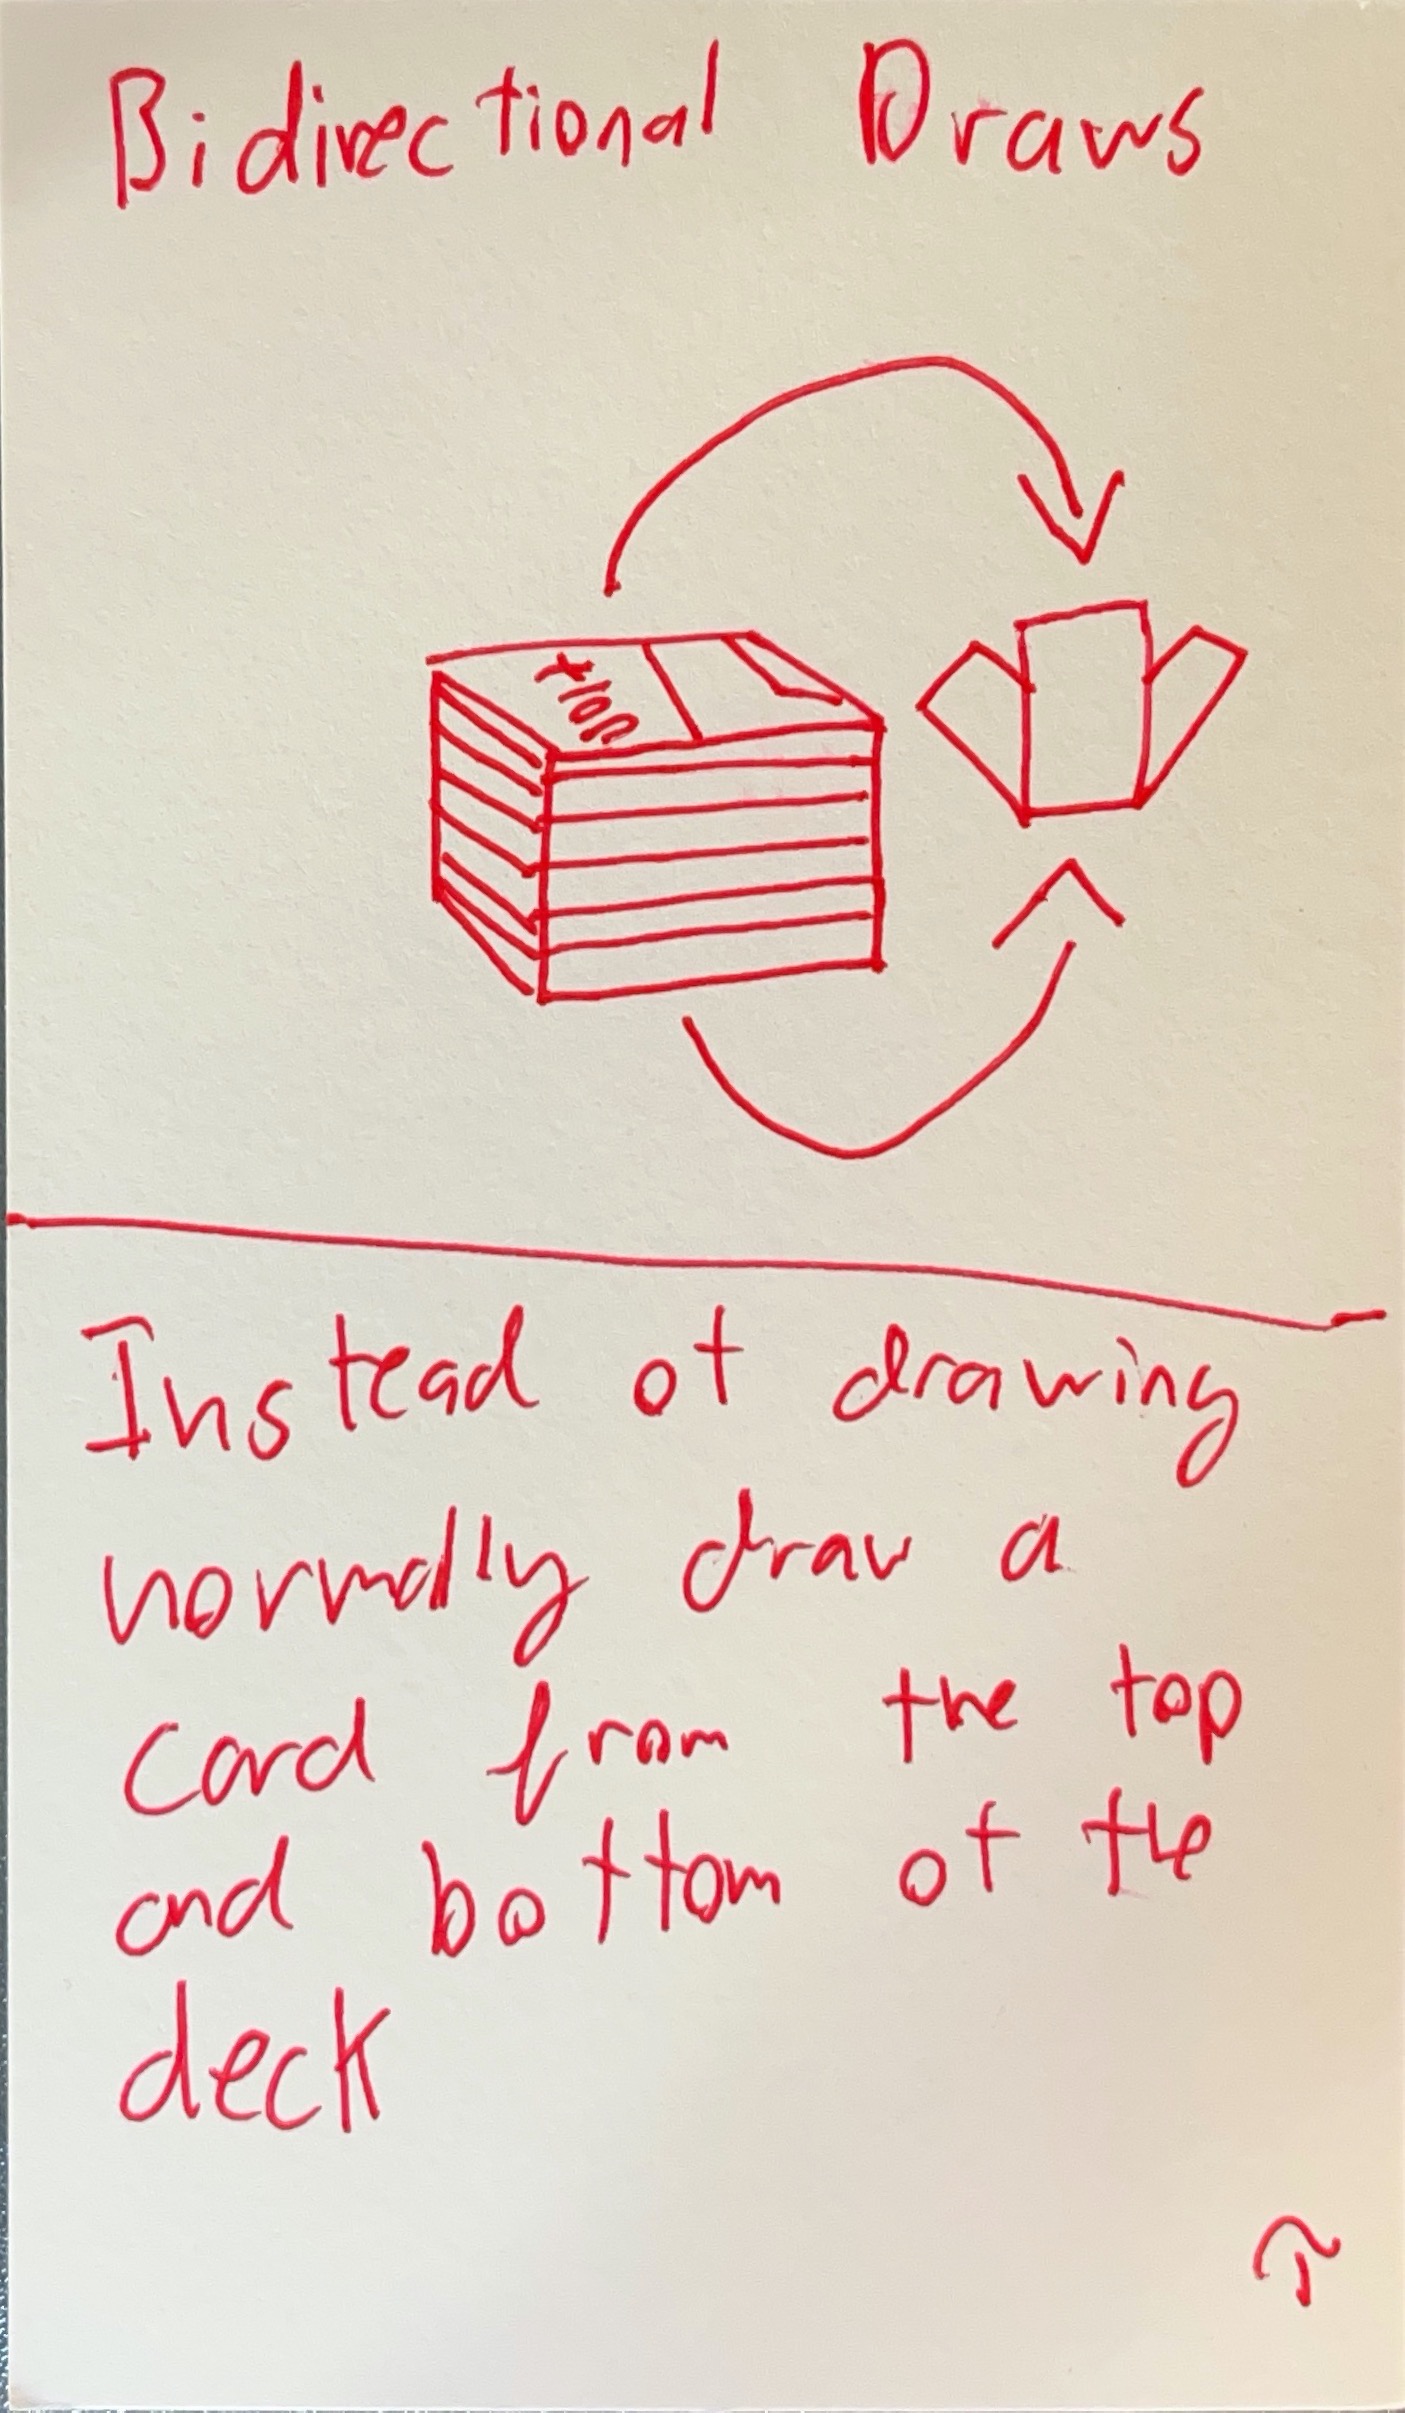 Bidirectional Draws
+100
Instead of drawing
normally draw a
card from the top
and bottom of the
deck